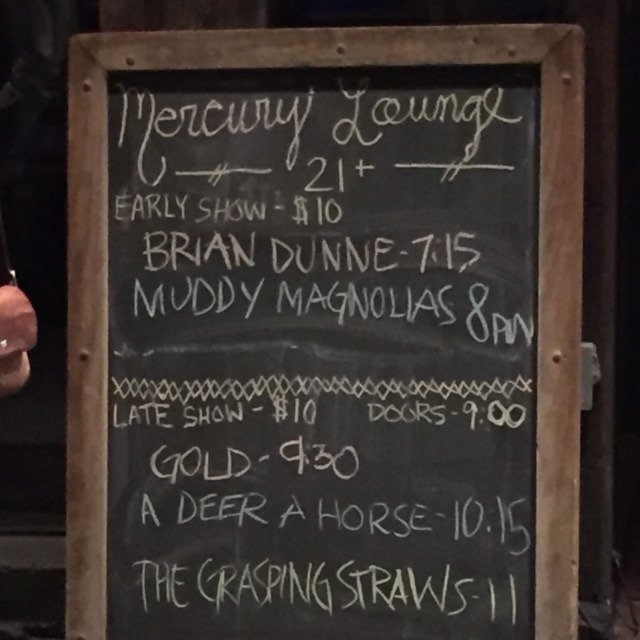 Mercury Lounge
21+
EARLY SHOW - $10
BRIAN DUNNE - 7:15
MUDDY MAGNOLIAS 8PM
LATE SHOW - $10 DOORS - 9:00
GOLD - 9:30
A DEER A HORSE - 10:15
THE GRASPING STRAWS - 11